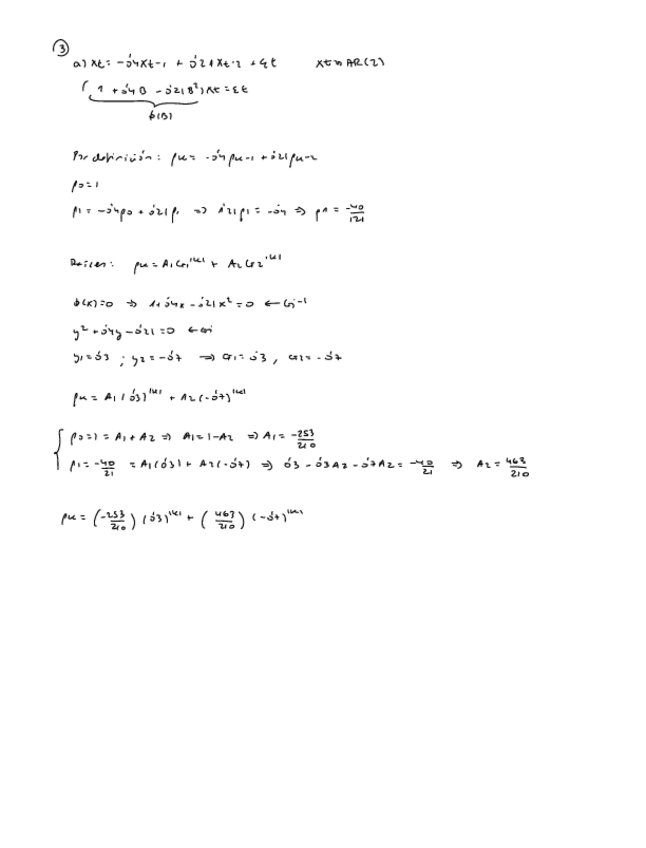 ③
a) Xt = -0'4Xt-1 + 0'21Xt-2 + εt Xt ~ AR(2)
(1 + 0'4B - 0'21B²)Xt = εt
ϕ(B)
Por definición: ρk = -0'4ρk-1 + 0'21ρk-2
ρ0 = 1
ρ1 = -0'4ρ0 + 0'21ρ1 => 1'21ρ1 = -0'4 => ρ1 = -40/121
Raíces: ρk = A1G1^|k| + A2G2^|k|
ϕ(x)=0 => 1+0'4x - 0'21x² = 0 ← Gi^-1
y² + 0'4y - 0'21 = 0 ← Gi
y1 = 0'3 ; y2 = -0'7 => G1 = 0'3 , G2 = -0'7
ρk = A1(0'3)^|k| + A2(-0'7)^|k|
ρ0 = 1 = A1 + A2 => A1 = 1-A2 => A1 = -253/210
ρ1 = -40/21 = A1(0'3) + A2(-0'7) => 0'3 - 0'3A2 - 0'7A2 = -40/21 => A2 = 463/210
ρk = (-253/210)(0'3)^|k| + (463/210)(-0'7)^|k|